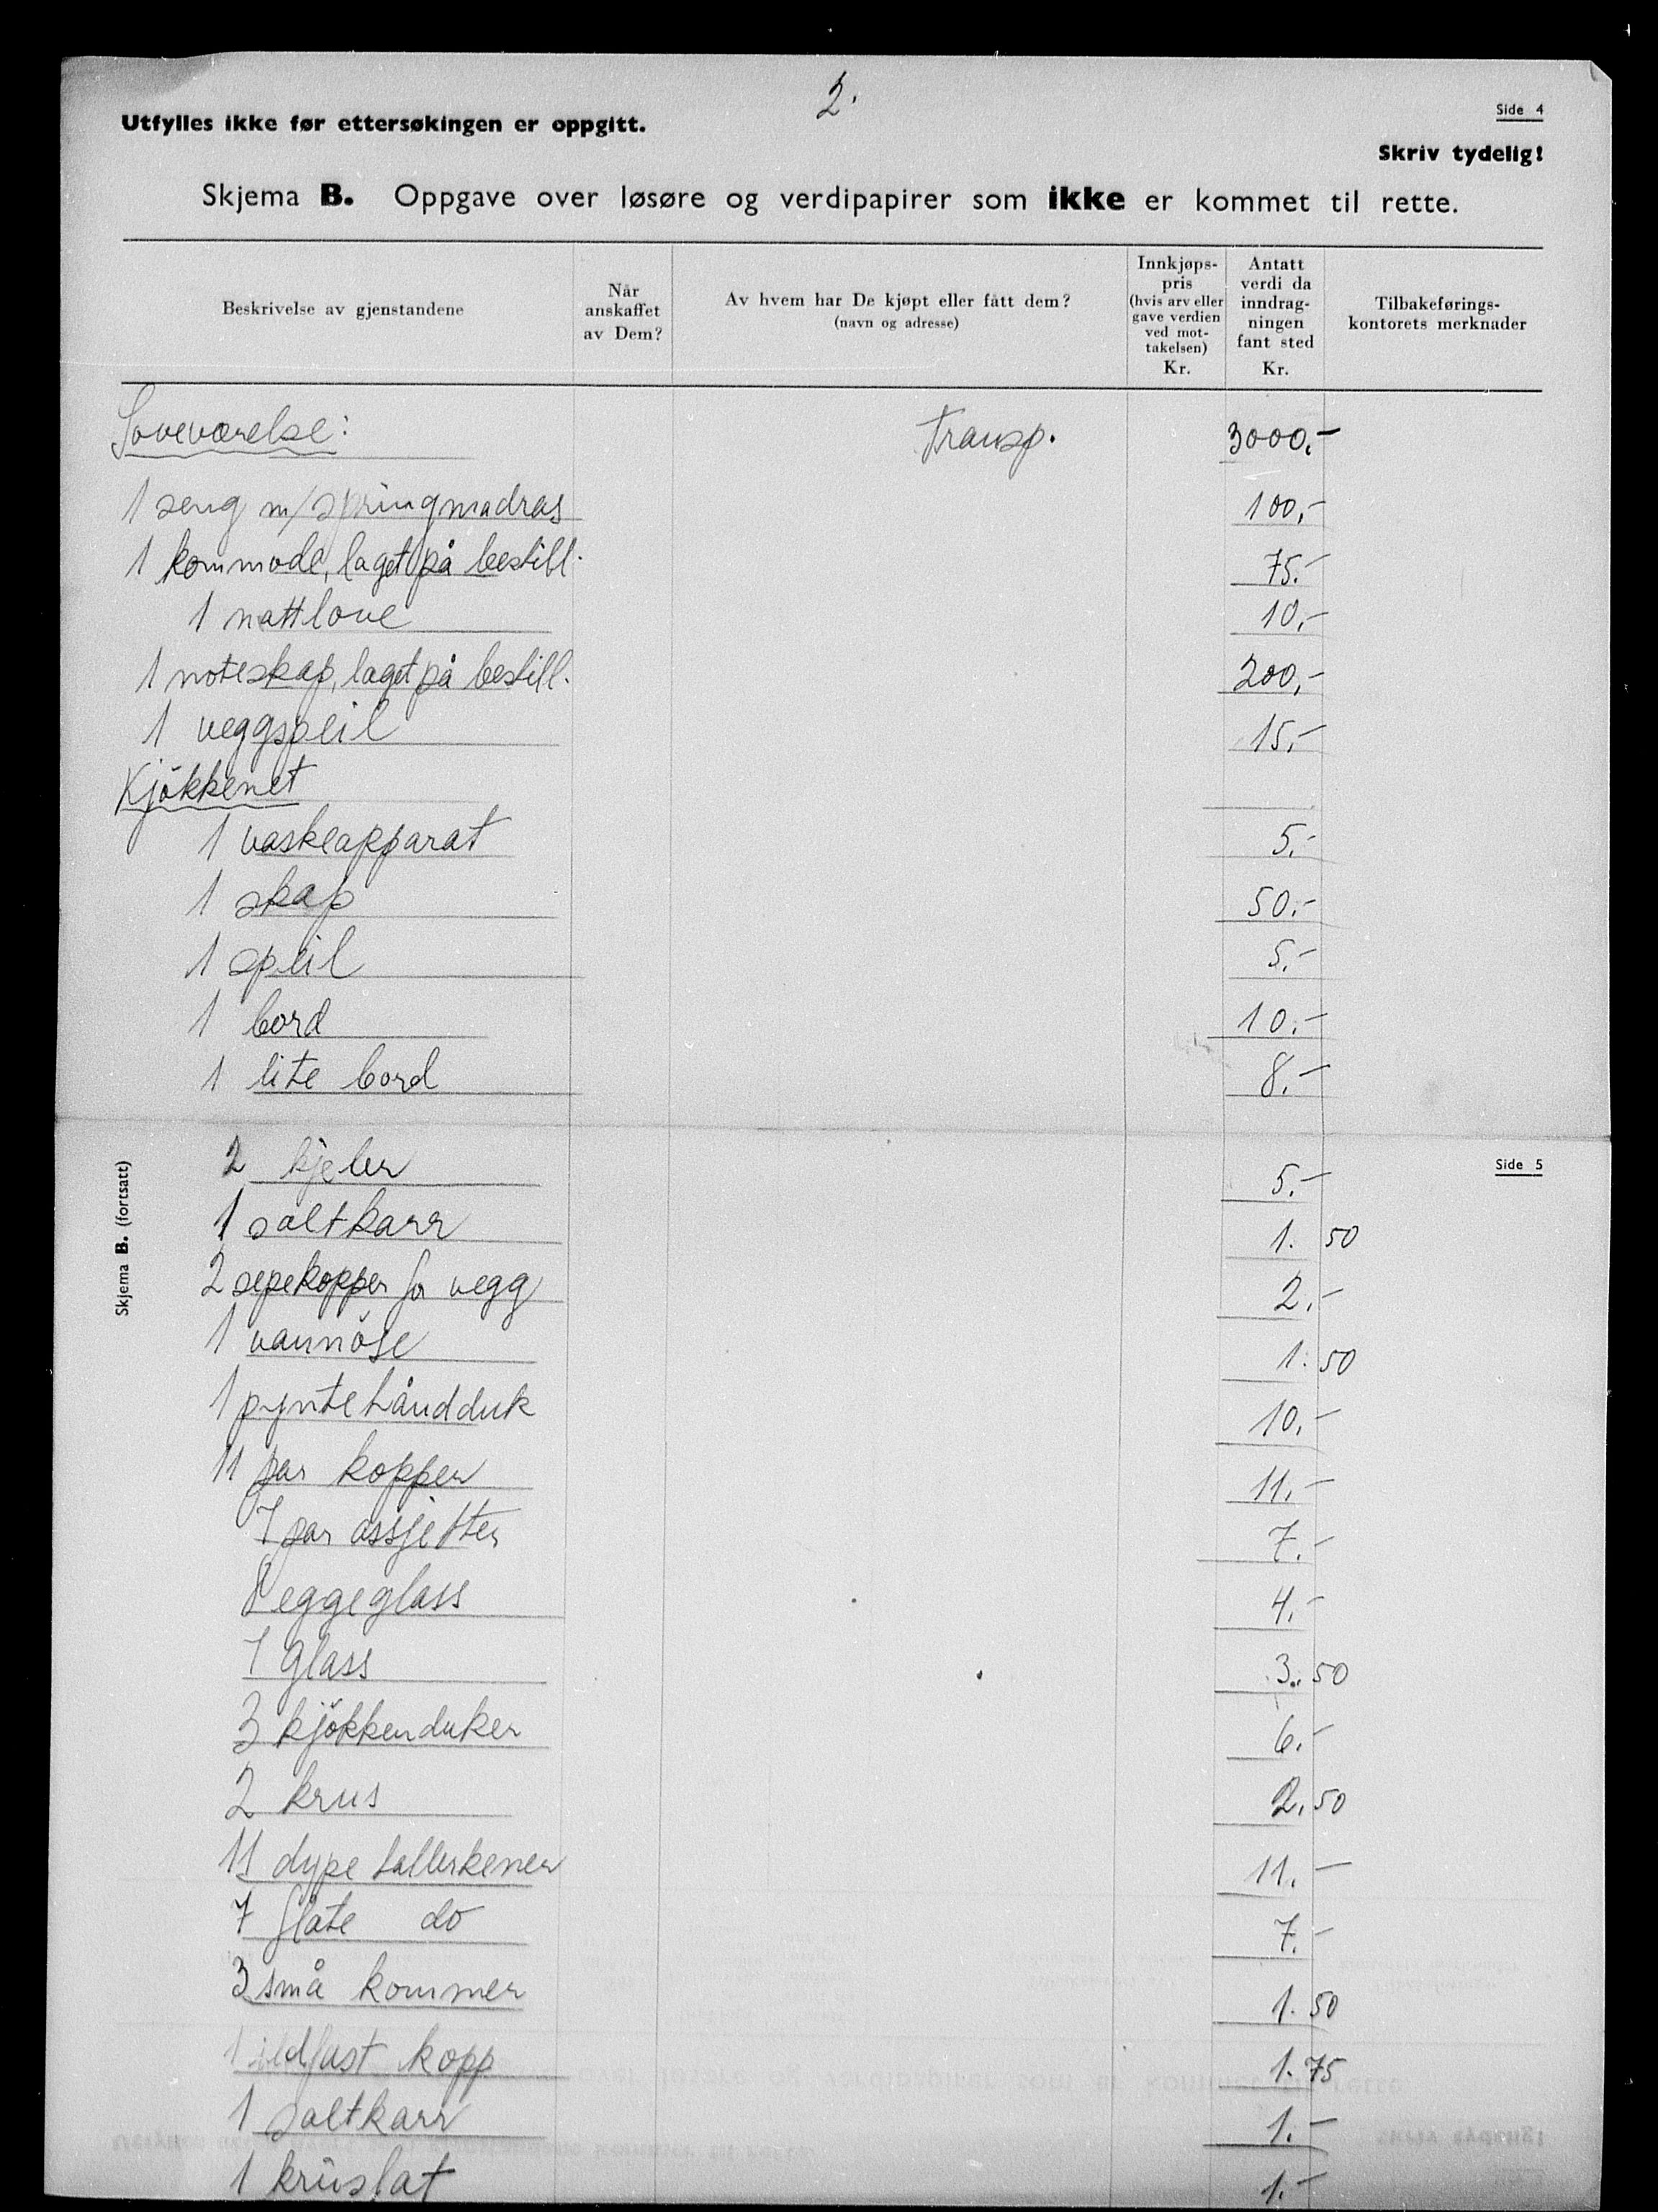 2.
Side 4
Utfylles ikke før ettersøkingen er oppgitt.
Skriv tydelig!
Skjema B. Oppgave over løsøre og verdipapirer som ikke er kommet til rette.
Beskrivelse av gjenstandene
Når anskaffet av Dem?
Av hvem har De kjøpt eller fått dem? (navn og adresse)
Innkjøps-pris (hvis arv eller gave verdien ved mot-takelsen) Kr.
Antatt verdi da inndrag-ningen fant sted Kr.
Tilbakeførings-kontorets merknader
Soveværelse: Transp. 3000.-
1 seng m/springmadras 100,-
1 kommode, laget på bestill. 75.-
1 nattlove 10,-
1 noteskap, laget på bestill. 200,-
1 veggspeil 15,-
Kjökkenet
1 vaskeapparat 5.-
1 skap 50.-
1 speil 5.-
1 bord 10.-
1 lite bord 8.-
Side 5
Skjema B. (fortsatt)
2 kjeler 5.-
1 saltkarr 1. 50
2 sepekopper for vegg 2.-
1 vannöse 1. 50
1 pyntehåndduk 10.-
11 par kopper 11.-
7 par assjetter 7.-
8 eggeglass 4.-
7 glass 3. 50
3 kjökkenduker 6.-
2 krus 2. 50
11 dype tallerkener 11.-
7 flate do 7.-
3 små kommer 1. 50
1 ildfast kopp 1. 75
1 saltkarr 1.-
1 krusfat 1.-